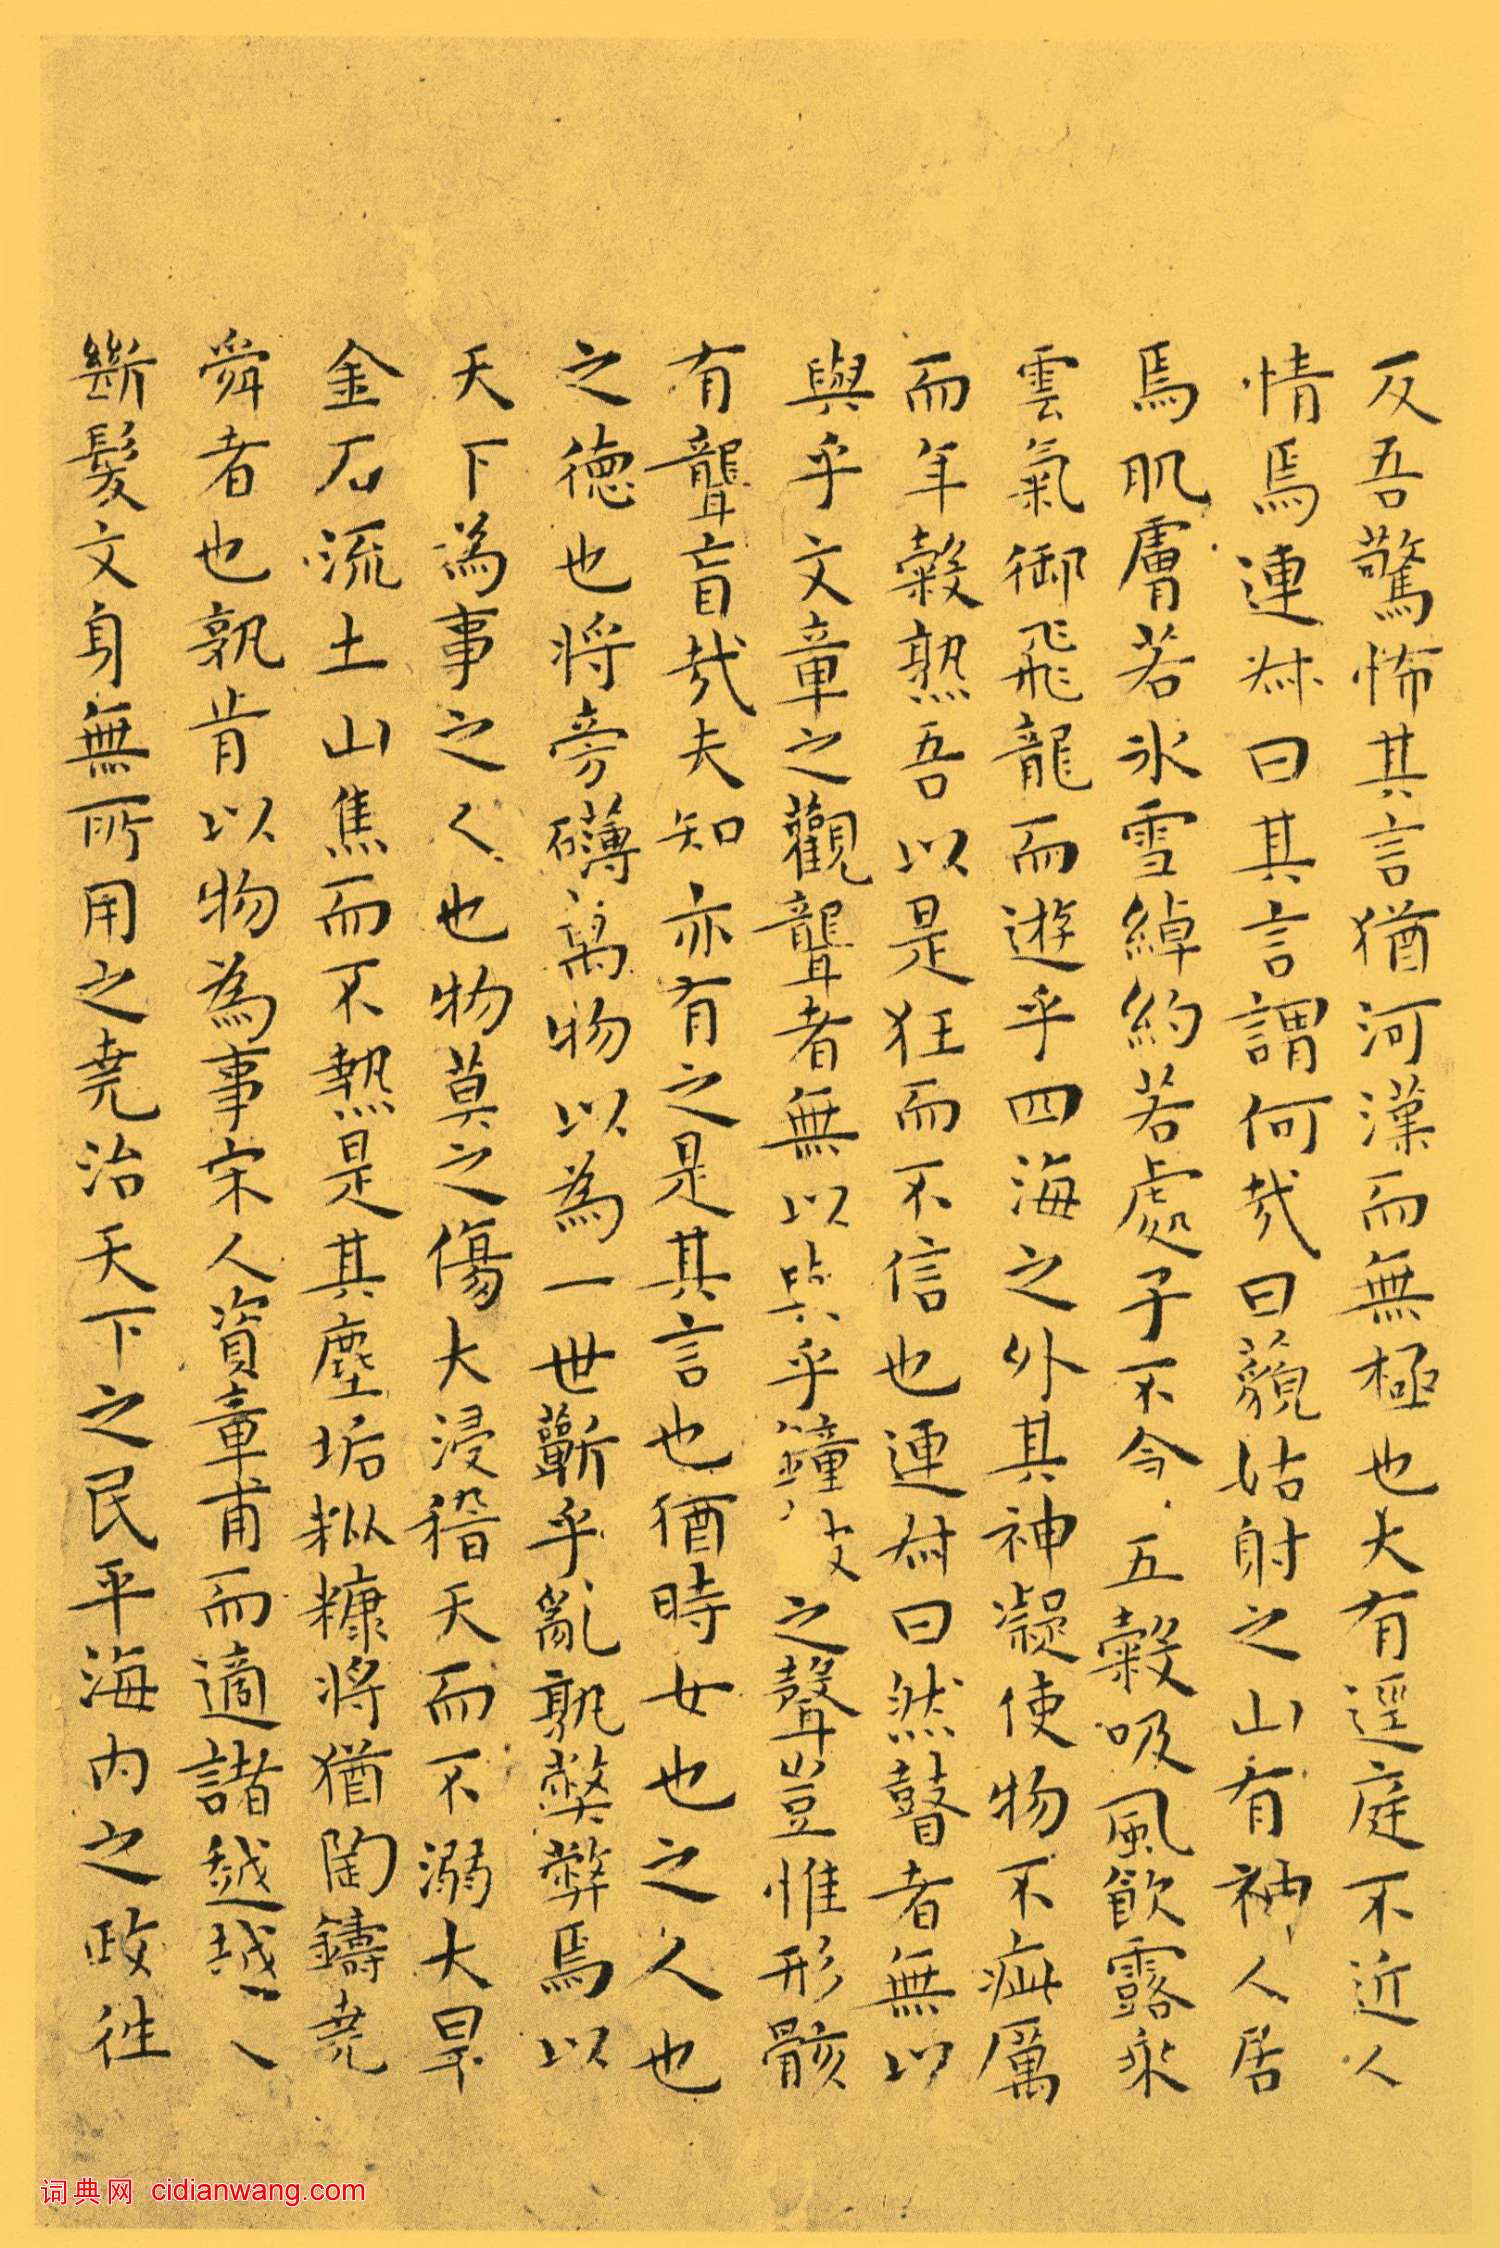 反吾驚怖其言猶河漢而無極也大有逕庭不近人
情焉連叔曰其言謂何哉曰藐姑射之山有神人居
焉肌膚若氷雪綽約若處子不今五穀吸風飲露乘
雲氣御飛龍而遊乎四海之外其神凝使物不疵厲
而年穀熟吾以是狂而不信也連叔曰然瞽者無以
與乎文章之觀聾者無以與乎鐘鼓之聲豈惟形骸
有聾盲哉夫知亦有之是其言也猶時女也之人也
之德也將旁礴萬物以為一世蘄乎亂孰弊弊焉以
天下為事之人也物莫之傷大浸稽天而不溺大旱
金石流土山焦而不熱是其塵垢粃糠將猶陶鑄堯
舜者也孰肯以物為事宋人資章甫而適諸越越人
斷髮文身無所用之堯治天下之民平海內之政往
词典网 cidianwang.com